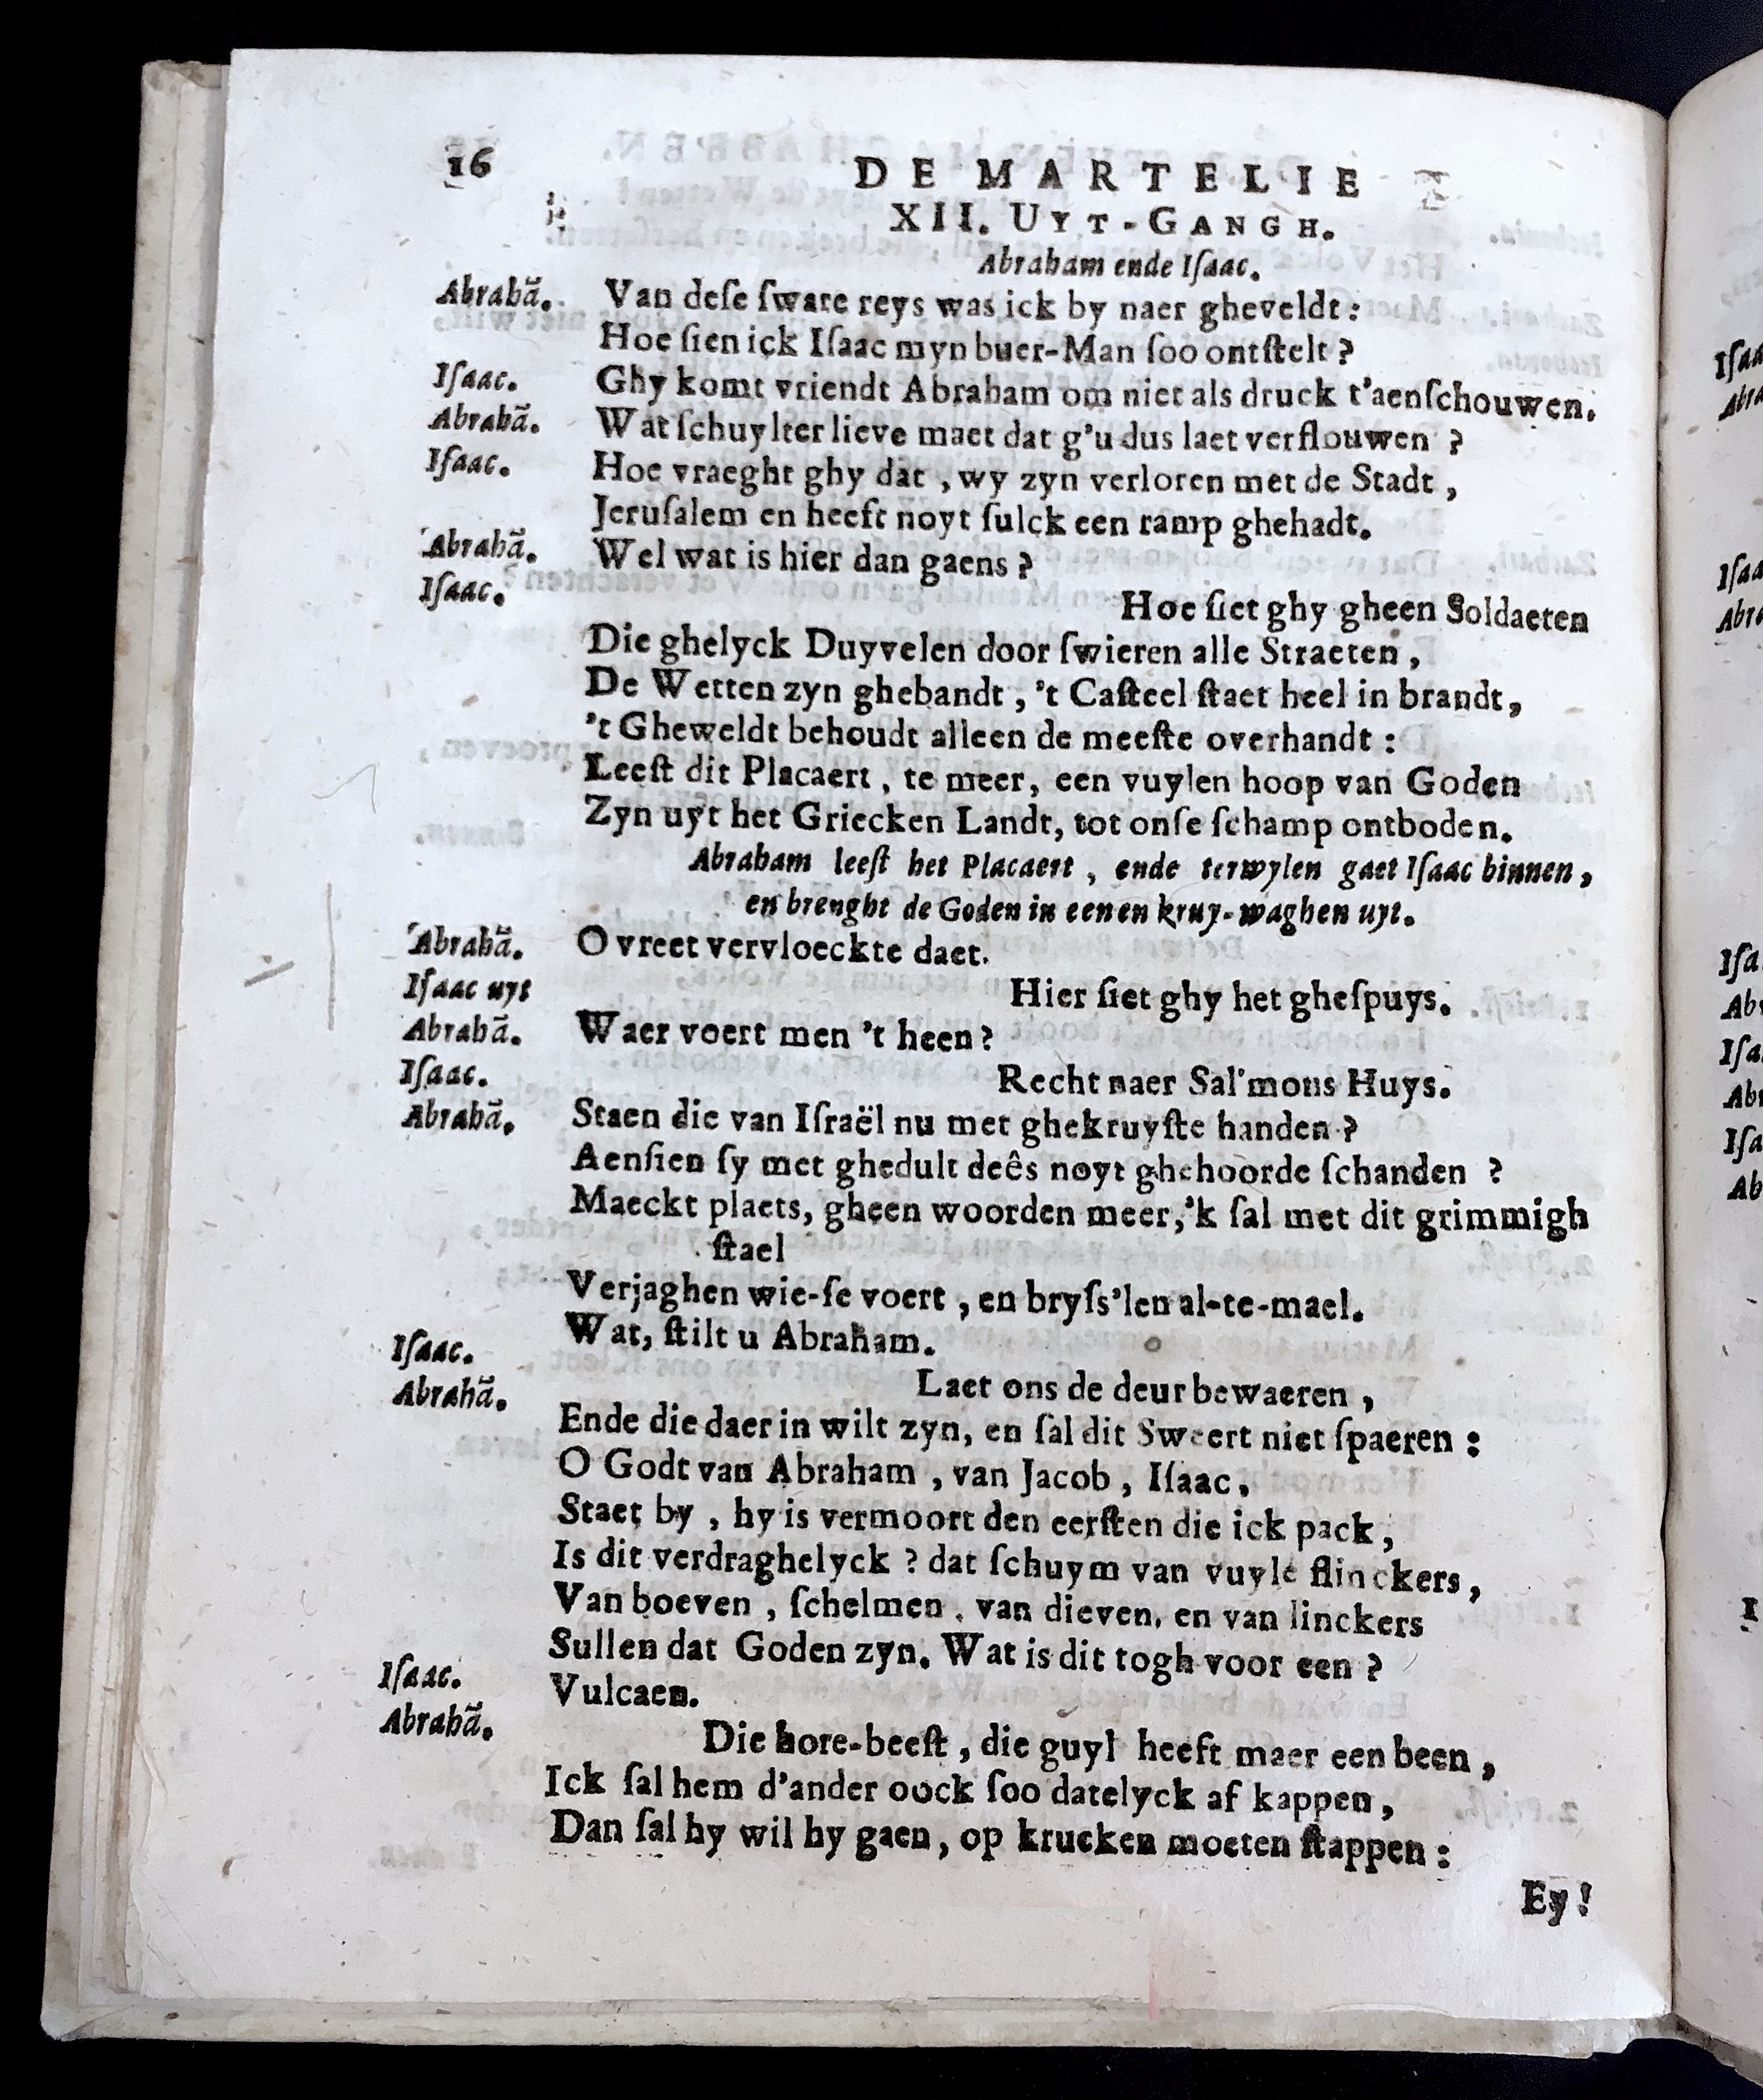 16 DE MARTELIE
XII. UYT-GANGH.
Abraham ende Iſaac.
Abrahã. Van deſe ſware reys was ick by naer gheveldt:
Hoe ſien ick Iſaac myn buer-Man ſoo ontſtelt?
Iſaac. Ghy komt vriendt Abraham om niet als druck t'aenſchouwen.
Abrahã. Wat ſchuylter lieve maet dat g'u dus laet verflouwen?
Iſaac. Hoe vraeght ghy dat, wy zyn verloren met de Stadt,
Jeruſalem en heeft noyt ſulck een ramp ghehadt.
Abrahã. Wel wat is hier dan gaens?
Iſaac. Hoe ſiet ghy gheen Soldaeten
Die ghelyck Duyvelen door ſwieren alle Straeten,
De Wetten zyn ghebandt, 't Caſteel ſtaet heel in brandt,
't Gheweldt behoudt alleen de meeſte overhandt:
Leeſt dit Placaert, te meer, een vuylen hoop van Goden
Zyn uyt het Griecken Landt, tot onſe ſchamp ontboden.
Abraham leeſt het Placaert, ende terwylen gaet Iſaac binnen,
en brenght de Goden in eenen kruy-waghen uyt.
Abrahã. O vreet vervloeckte daet.
Iſaac uyt Hier ſiet ghy het gheſpuys.
Abrahã. Waer voert men 't heen?
Iſaac. Recht naer Sal'mons Huys.
Abrahã. Staen die van Iſraël nu met ghekruyſte handen?
Aenſien ſy met ghedult deês noyt ghehoorde ſchanden?
Maeckt plaets, gheen woorden meer, 'k ſal met dit grimmigh
ſtael
Verjaghen wie-ſe voert, en bryſs'len al-te-mael.
Iſaac. Wat, ſtilt u Abraham.
Abrahã. Laet ons de deur bewaeren,
Ende die daer in wilt zyn, en ſal dit Sweert niet ſpaeren:
O Godt van Abraham, van Jacob, Iſaac,
Staet by, hy is vermoort den eerſten die ick pack,
Is dit verdraghelyck? dat ſchuym van vuyle flinckers,
Van boeven, ſchelmen, van dieven, en van linckers
Sullen dat Goden zyn. Wat is dit togh voor een?
Iſaac. Vulcaen.
Abrahã. Die hore-beeſt, die guyl heeft maer een been,
Ick ſal hem d'ander oock ſoo datelyck af kappen,
Dan ſal hy wil hy gaen, op krucken moeten ſtappen:
Ey!